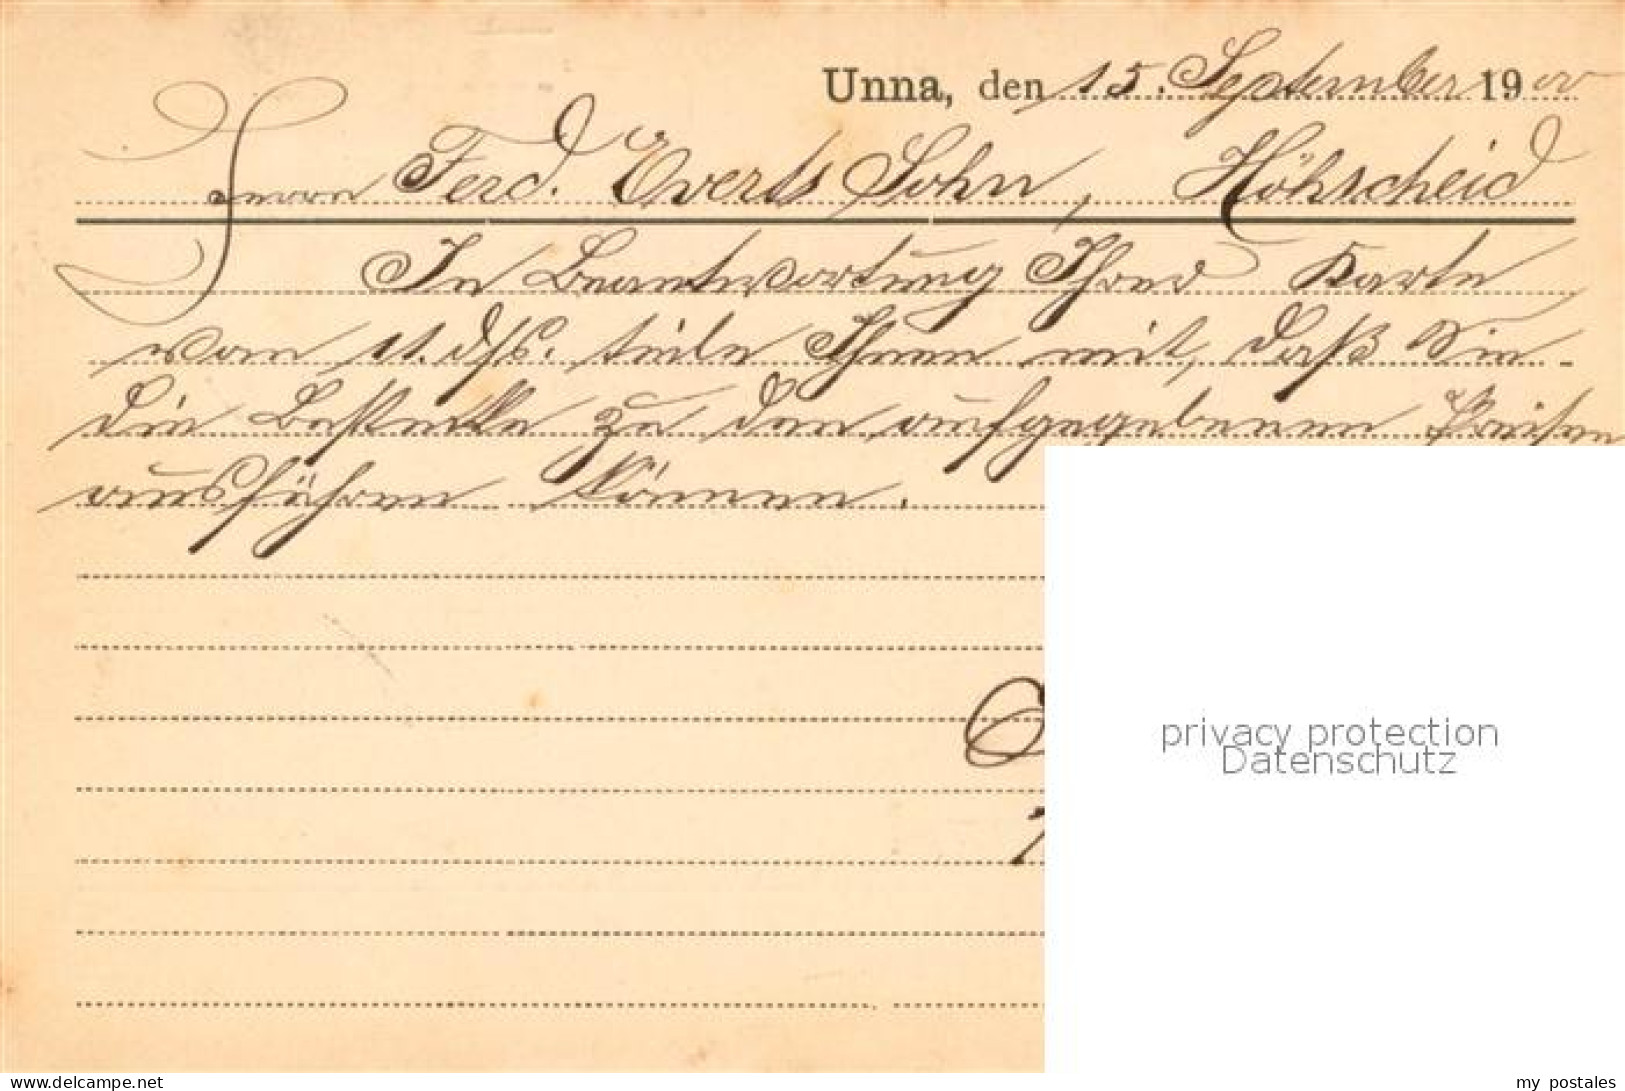 Unna, den 15. September 1900
Herrn Ferd. Everts Sohn, Höhscheid
In Beantwortung Ihrer Karte
vom 11. ds. teile Ihnen mit, daß Sie
die Bestecke zu den aufgegebenen Preisen
ausführen können.
privacy protection
Datenschutz
www.delcampe.net
my_postales